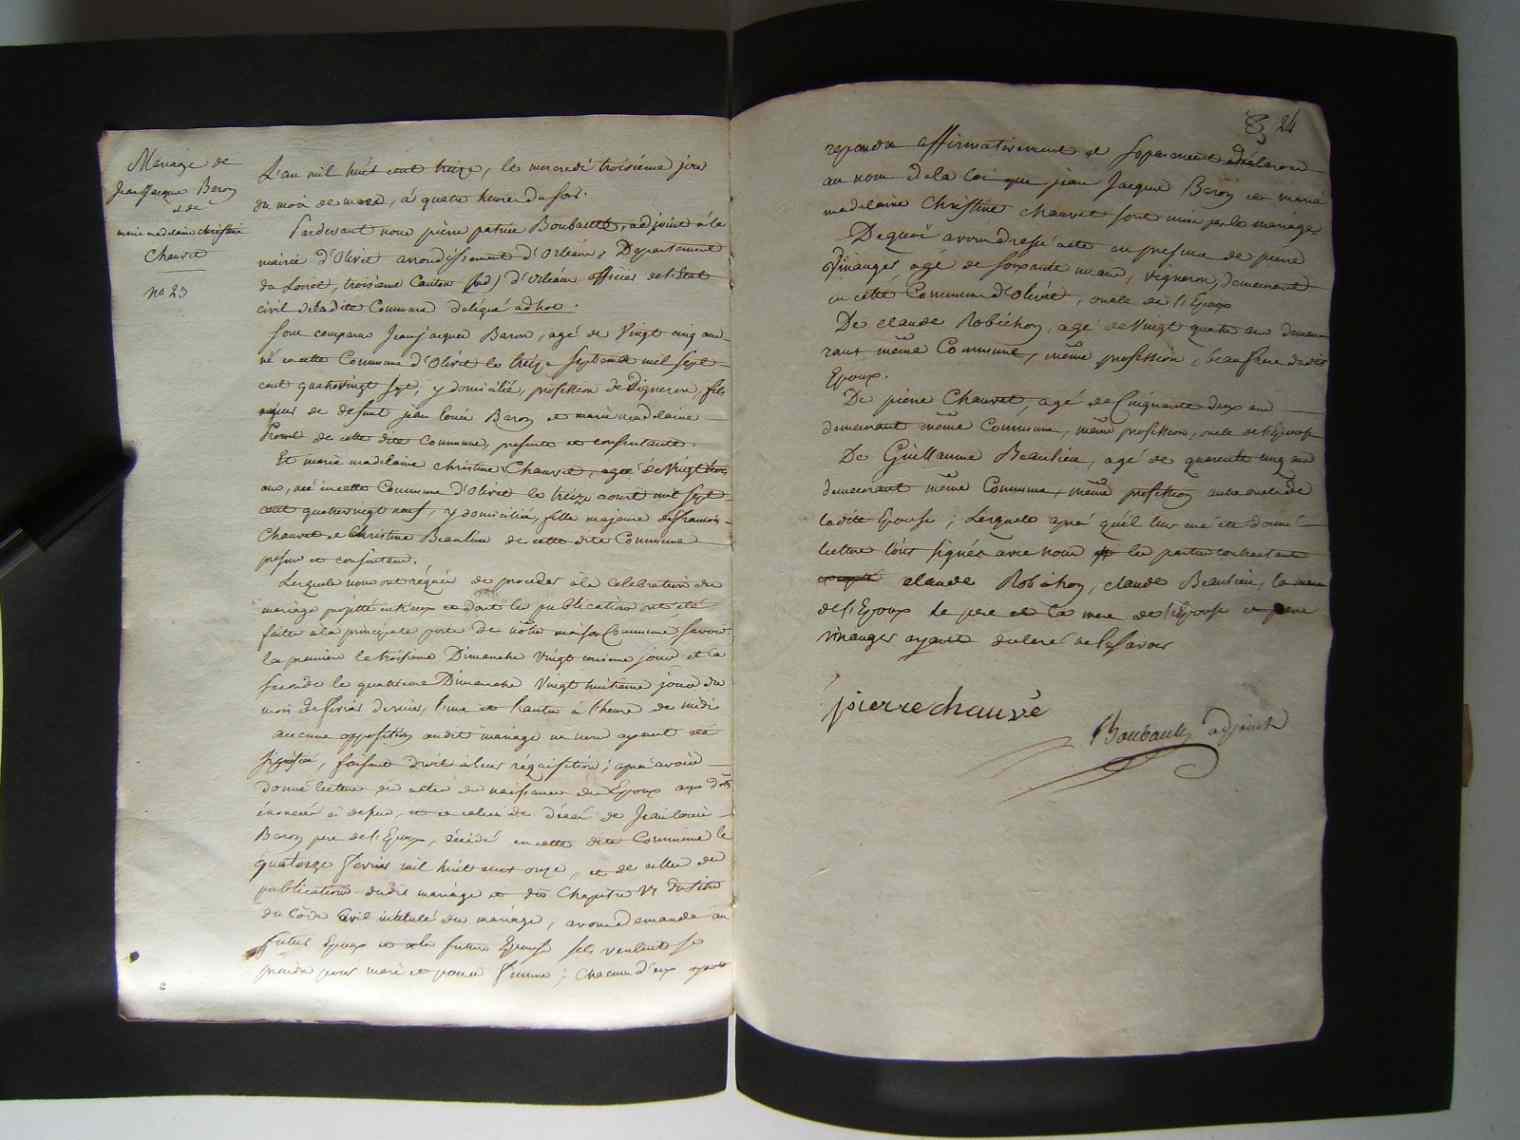 Mariage de
Jean Jacque Baron
et de
marie madelaine christine
Chauvet
no 23
L'an mil huit cent treize, le mercredi troisième jour
du mois de mars, à quatre heures du soir.
Pardevant nous pierre patrice Boubault, adjoint à la
mairie d'Olivet arrondissement d'Orléans, Departement
du Loiret, troisième Canton (sud) d'Orléans officier de l'Etat
civil de la dite Commune délégué ad hoc.
Sont comparu Jean Jacques Baron, agé de Vingt cinq ans
né en cette Commune d'Olivet le treize Septembre mil sept
cent quatrevingt sept, y domicilié, profession de Vigneron, fils
majeur de defunt jean louis Baron et marie madelaine
de cette dite Commune, presente et consentante.
Et marie madelaine christine Chauvet, agée de Vingt trois
ans, née en cette Commune d'Olivet le treize aout mil sept
cent quatrevingt neuf, y domiciliée, fille majeure de francois
Chauvet et Christine Beaulieu de cette dite Commune
presens et consentans.
Lesquels nous ont réquis de proceder à la celebration du
mariage projetté entr'eux et dont les publications ont été
faites a la principale porte de nôtre maison Commune savoir
la premiere le troisieme Dimanche Vingt unième jour et la
seconde le quatrieme Dimanche Vingt huitieme jour du
mois de fevrier dernier, l'une et l'autre à l'heure de midi
aucune opposition audit mariage ne nous ayant été
signifiée, faisant droit à leur réquisition; après avoir
donné lecture des actes de naissance des Epoux aux dates
énoncées ci dessus, et de celui de décès de Jean louis
Baron pere de l'Epoux, décédé en cette dite Commune le
quatorze fevrier mil huit cent onze, et de celles des
publications dudit mariage et du Chapitre VI du titre
du Code Civil intitulé du mariage, avons demandé au
futur Epoux et a la future Epouse s'ils veulent se
prendre pour mari et pour femme; chacun d'eux ayant
24
repondu affirmativement et separement declarons
au nom de la loi que jean Jacque Baron et marie
madelaine Christine Chauvet sont unis par le mariage.
De quoi avons dressé acte en presence de pierre
Vinauger, agé de soixante un ans, vigneron, demeurant
en cette Commune d'Olivet, oncle de l'Epoux
De claude Robichon, agé de Vingt quatre ans demeu-
rant même Commune, même profession, beaufrere dudit
Epoux.
De pierre Chauvet, agé de Cinquante deux ans
demeurant même Commune, même profession, oncle de l'Epouse
De Guillaume Beaulieu, agé de quarente cinq ans
demeurant même Commune, même profession autre oncle de
la dite Epouse; Lesquels après qu'il leur en a été donné
lecture l'ont signés avec nous les parties contractantes
claude Robichon, claude Beaulieu, la mere
de l'Epoux le pere et la mere de l'Epouse et pierre
Vinauger ayant declaré ne le savoir
pierre chauvé
Boubault adjoint